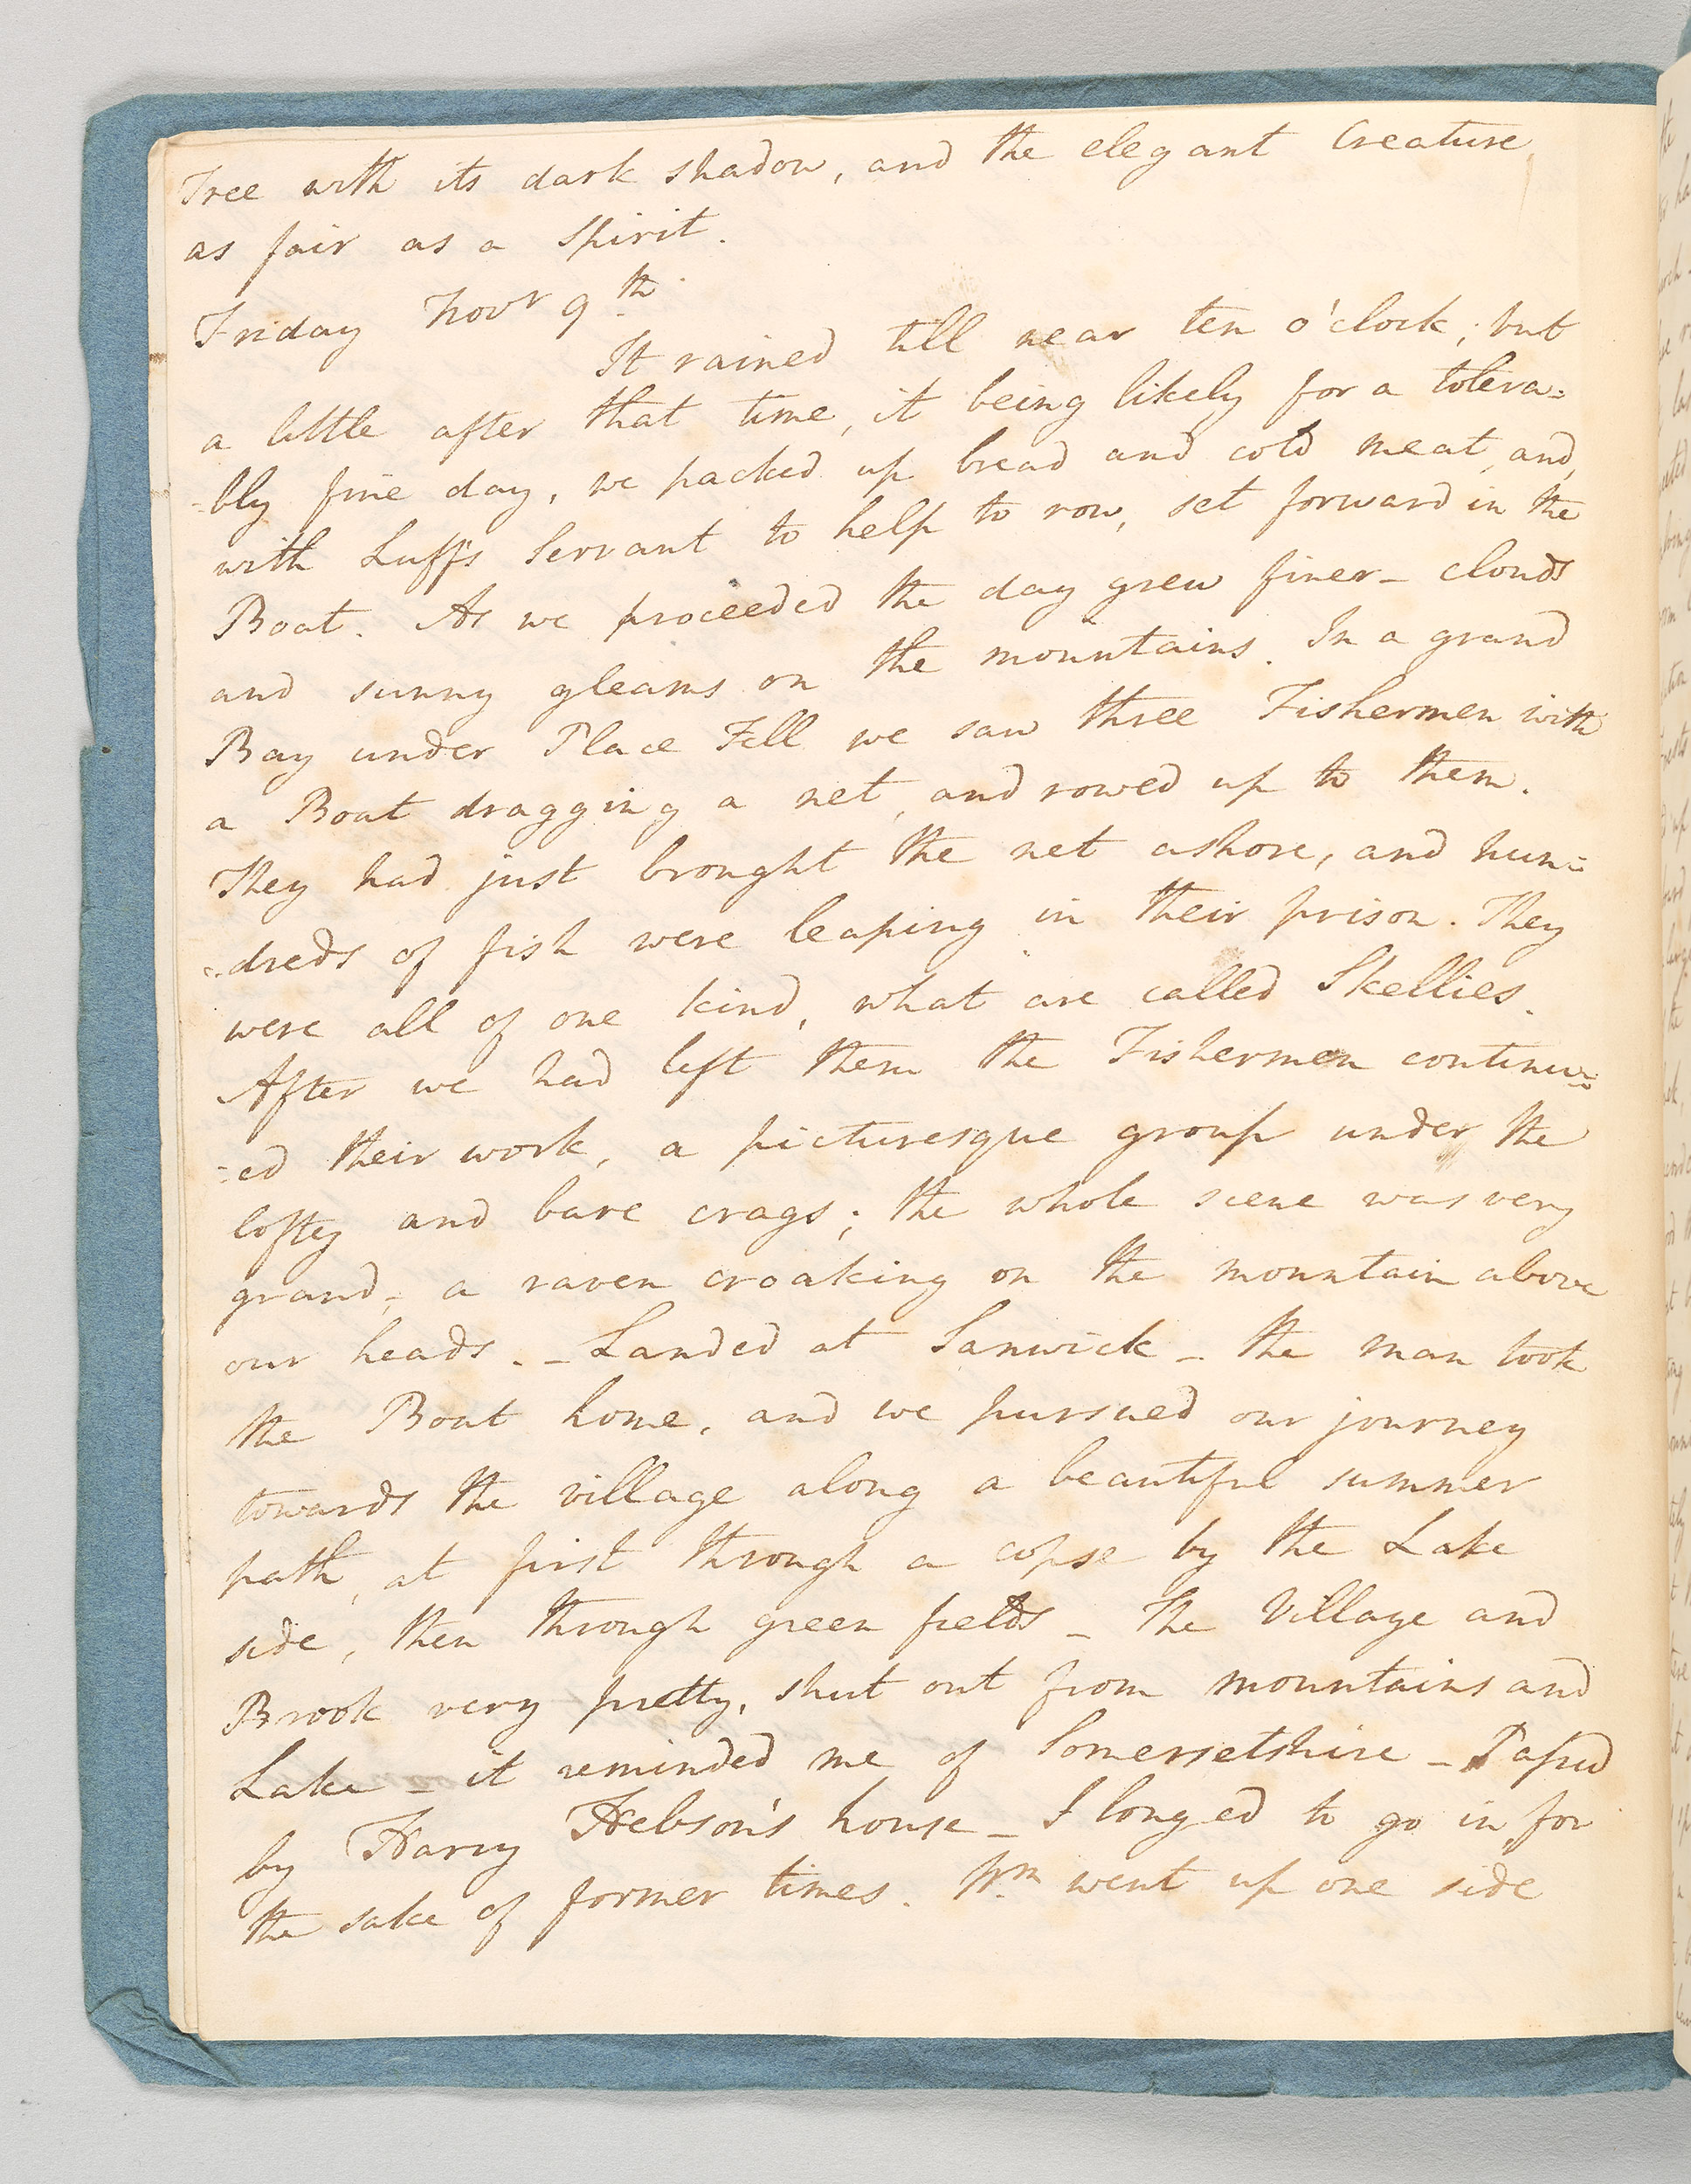 Tree with its dark shadow, and the elegant Creature
as fair as a Spirit.
Friday Novr 9th.
It rained till near ten o'clock; but
a little after that time, it being likely for a tolera=
=bly fine day, we packed up bread and cold meat, and,
with Luff's Servant to help to row, set forward in the
Boat. As we proceeded the day grew finer – clouds
and sunny gleams on the mountains. In a grand
Bay under Place Fell we saw three Fishermen with
a Boat dragging a net, and rowed up to them.
They had just brought the net ashore, and hun=
=dreds of fish were leaping in their prison. They
were all of one kind, what are called Skellies.
After we had left them the Fishermen continu=
=ed their work, a picturesque group under the
lofty and bare crags; the whole scene was very
grand, a raven croaking on the mountain above
our heads. – Landed at Sanwick – the man took
the Boat home, and we pursued our journey
towards the village along a beautiful summer
path, at first through a copse by the Lake
side, then through green fields – The Village and
Brook very pretty, shut out from mountains and
Lake – it reminded me of Somersetshire – Passed
by Harry Hebson's house – I longed to go in for
the sake of former times. Wm went up one side